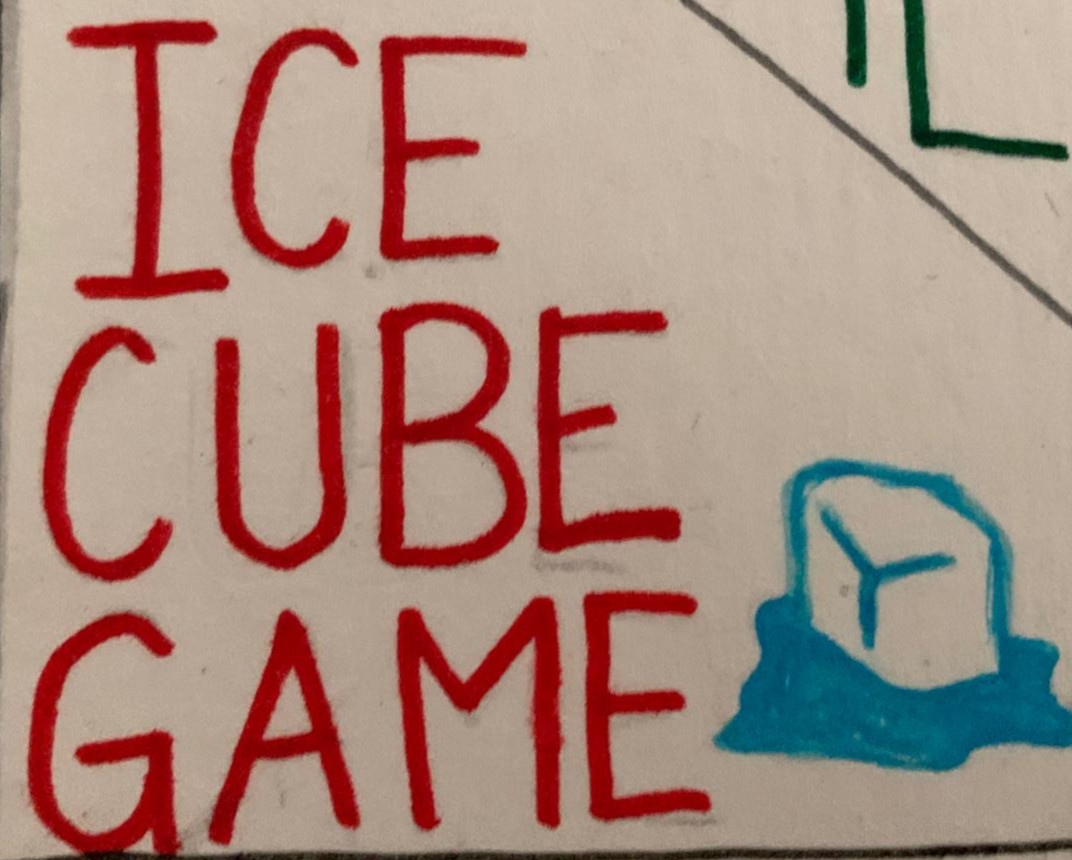 ICE
CUBE
GAME